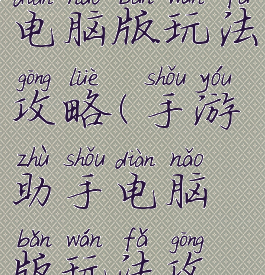 diàn nǎo bǎn wán fǎ
电脑版玩法
gōng lüè shǒu yóu
攻略(手游
zhù shǒu diàn nǎo
助手电脑
bǎn wán fǎ gōng
版玩法攻